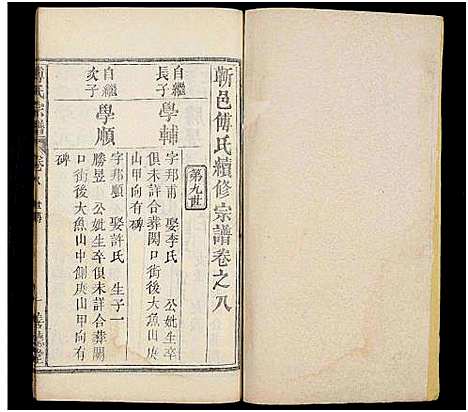 蘄邑傅氏續修宗譜卷之八
第九世
自繼長子
學輔
字邦甫 娶李氏 公妣生卒
俱未詳合葬關口街後大魚山庚
山甲向有碑
自繼次子
學順
字邦順 娶許氏 生子一
勝昱 公妣生卒俱未詳合葬關
口街後大魚山中側庚山甲向有
碑
傅氏宗譜
卷八